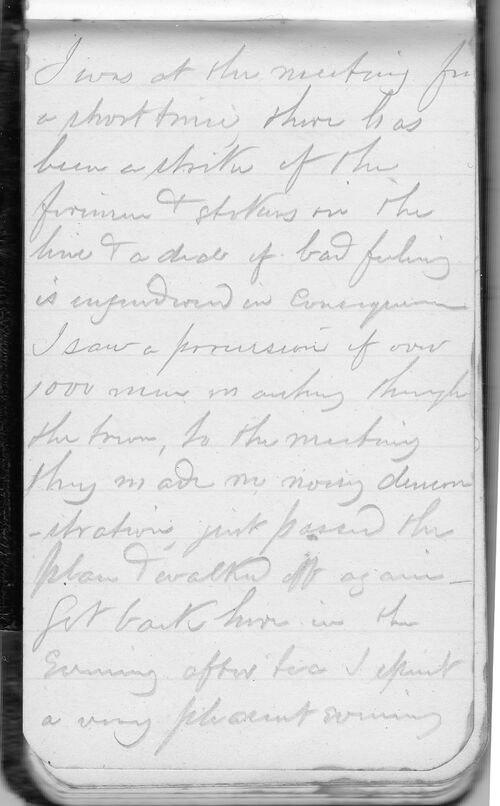 I was at the meeting for
a short time, there has
been a strike of the
firemen & stokers on the
line & a deal of bad feeling
is engendered in consequence
I saw a procession of over
1000 men marching through
the town, to the meeting
they made no noisy demon
-stration, just passed the
place & walked off again -
Got back here in the
Evening after tea I spent
a very pleasant evening